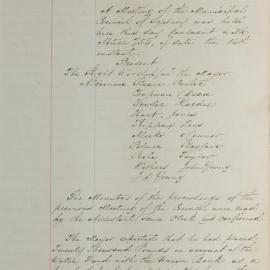 A Meeting of the Municipal
Council of Sydney was held
here this day pursuant with
Notice 755, of date the 14th
instant
Present
The Right Worshipful the Mayor
Aldermen Beare Carter
Chapman Dean
Fowler Hardie
Hart Jones
Lees
Meeks O'Connor
Palmer Playfair
Poole Taylor
Withers John Young
J. D. Young
The Minutes of the proceedings of the
previous Meeting of the Council were read
by the Assistant Town Clerk and confirmed
The Mayor reported that he had placed
Twenty Thousand Pounds on account of the
Water Fund with the Union Bank as a